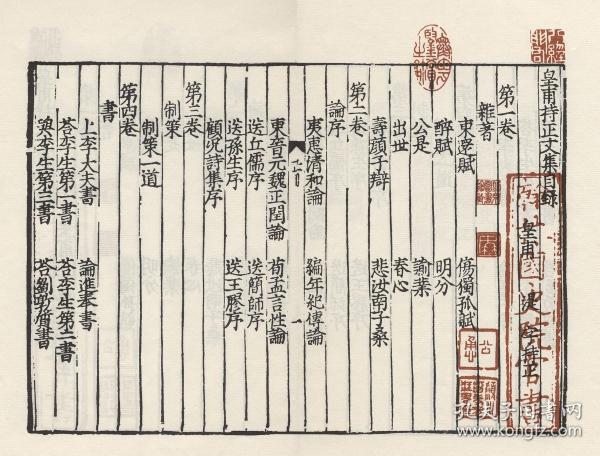 皇甫持正文集目錄
皇甫 湜 持正
第一卷
雜著
東還賦 傷獨孤賦
醉賦 明分
公是 諭業
出世 春心
壽顏子辯 悲汝南子桑
第二卷
論序
夷惠清和論 編年紀傳論
東晉元魏正閏論 荀孟言性論
送丘儒序 送簡師序
送孫生序 送王膠序
顧況詩集序
第三卷
制策
制策一道
第四卷
書
上李大夫書 論進奏書
荅李生第一書 荅李生第二書
與李生第三書 荅劉敦質書
國史院官書
孔夫子旧书网
www.kongfz.com